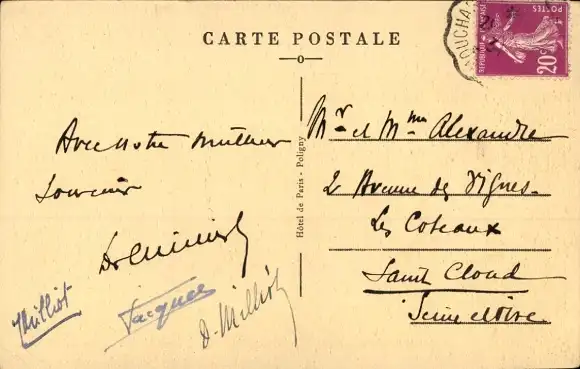 CARTE POSTALE
Avec notre meilleur
souvenir
Milliot
Jacques
D. Milliot
Hôtel de Paris - Poligny
Mr et Mme Alexandre
2 Avenue des Vignes
Les Coteaux
Saint Cloud
Seine et Oise
POSTES
20c